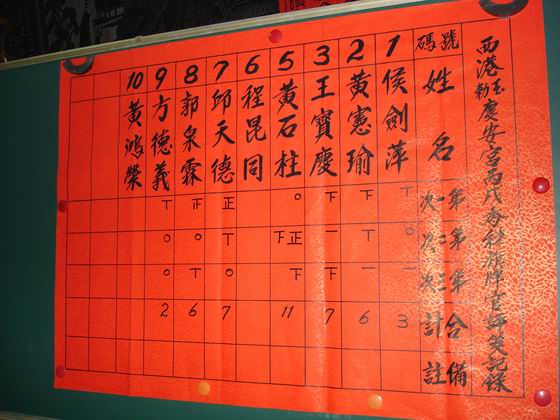 西港玉勅慶安宮丙戌香科旗牌官評筊記錄
號碼 姓名 第一次 第二次 第三次 合計 備註
1 侯劍萍 丅 0 一 3
2 黃憲瑜 下 丅 一 6
3 王寶慶 下 一 下 7
5 黃石柱 0 正下 下 11
6 程昆同
7 邱天德 正 丅 0 7
8 郭泉霖 0 丅 6
9 方德義 丅 0 0 2
10 黃鴻榮